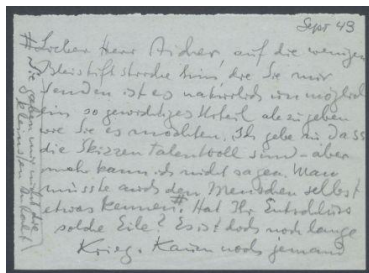 Sept 43
# Lieber Herr Aicher, auf die wenigen
Bleistiftstriche hin, die Sie mir
senden ist es natürlich unmöglich
ein so gewichtiges Urteil abzugeben
wie Sie es möchten. Ich gebe zu dass
die Skizzen talentvoll sind - aber
mehr kann ich nicht sagen. Man
müsste auch den Menschen selbst
etwas kennen #. Hat Ihr Entschluss
solche Eile? Es ist doch noch lange
Krieg. Kaum noch jemand
# Sie geben mir nicht die
kleinsten Anhalt!